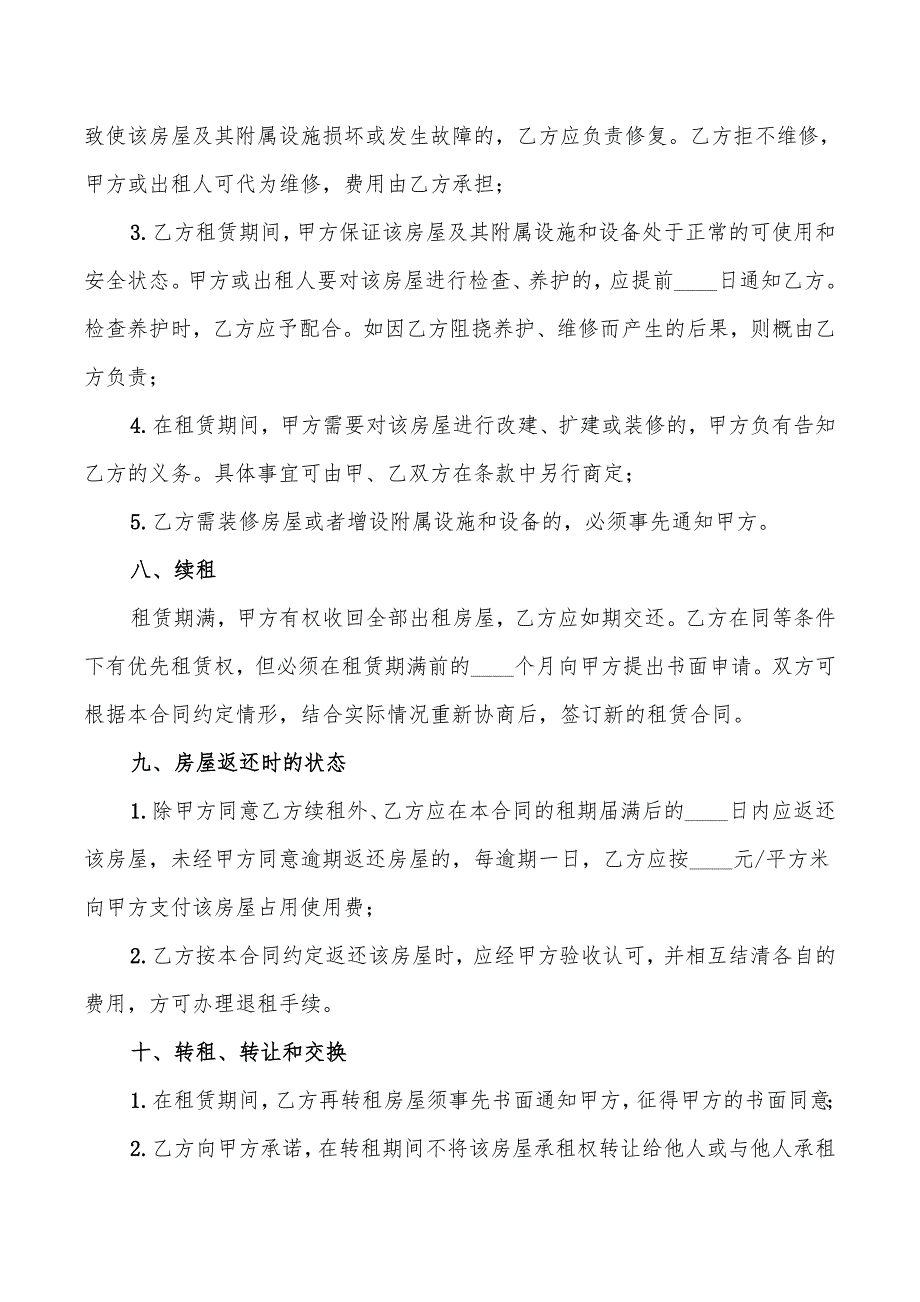 致使该房屋及其附属设施损坏或发生故障的，乙方应负责修复。乙方拒不维修，
甲方或出租人可代为维修，费用由乙方承担；
3.乙方租赁期间，甲方保证该房屋及其附属设施和设备处于正常的可使用和
安全状态。甲方或出租人要对该房屋进行检查、养护的，应提前____日通知乙方。
检查养护时，乙方应予配合。如因乙方阻挠养护、维修而产生的后果，则概由乙
方负责；
4.在租赁期间，甲方需要对该房屋进行改建、扩建或装修的，甲方负有告知
乙方的义务。具体事宜可由甲、乙双方在条款中另行商定；
5.乙方需装修房屋或者增设附属设施和设备的，必须事先通知甲方。
八、续租
租赁期满，甲方有权收回全部出租房屋，乙方应如期交还。乙方在同等条件
下有优先租赁权，但必须在租赁期满前的____个月向甲方提出书面申请。双方可
根据本合同约定情形，结合实际情况重新协商后，签订新的租赁合同。
九、房屋返还时的状态
1.除甲方同意乙方续租外、乙方应在本合同的租期届满后的____日内应返还
该房屋，未经甲方同意逾期返还房屋的，每逾期一日，乙方应按____元/平方米
向甲方支付该房屋占用使用费；
2.乙方按本合同约定返还该房屋时，应经甲方验收认可，并相互结清各自的
费用，方可办理退租手续。
十、转租、转让和交换
1.在租赁期间，乙方再转租房屋须事先书面通知甲方，征得甲方的书面同意；
2.乙方向甲方承诺，在转租期间不将该房屋承租权转让给他人或与他人承租